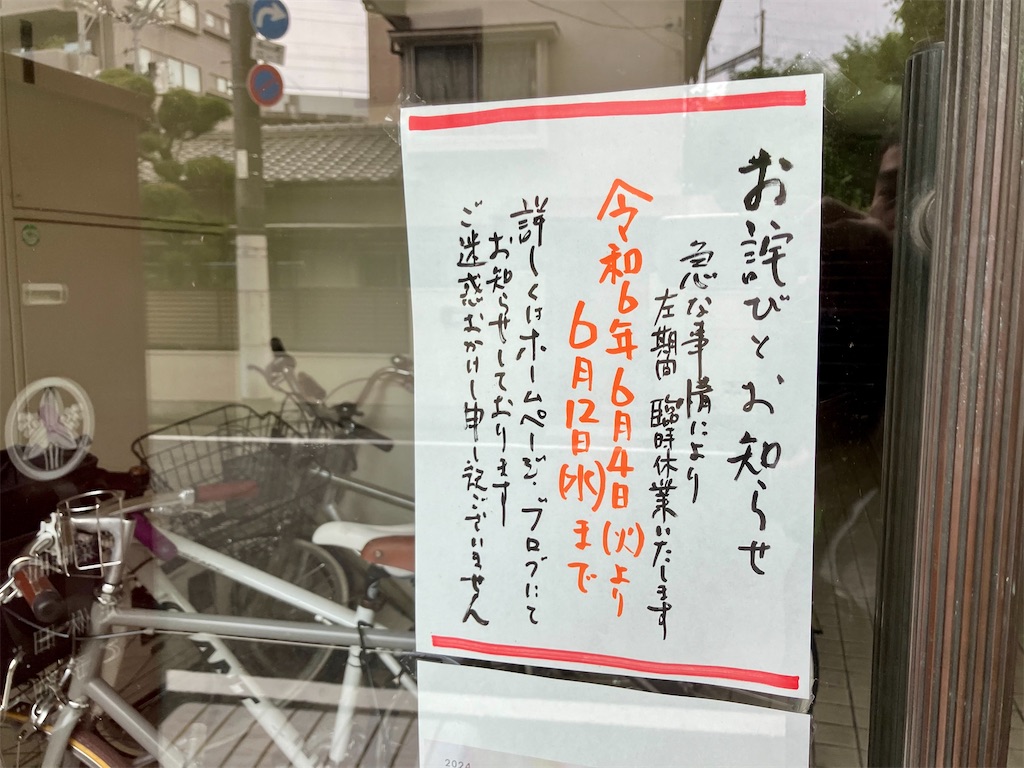 お詫びとお知らせ
急な事情により
左期間 臨時休業いたします
令和6年6月4日(火)より
6月12日(水)まで
詳しくはホームページ・ブログにて
お知らせしております
ご迷惑おかけし申し訳ございません
2024